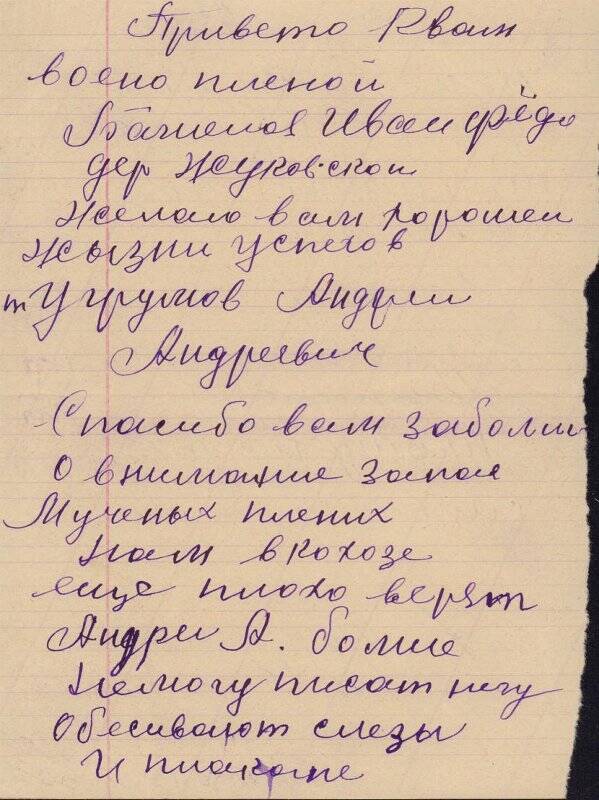 Привето Квам
воено пленой
Иван Фёдо
дер Жуковской
Желаю вам хорошеи
Жызни успехов
т Угрумов Андреи
Андреевич
Спасибо вам заболши
О внимание
Мученых плених
Нам вкохозе
еще плохо верят
Андреи А. болше
Немогу писат
слезы
И